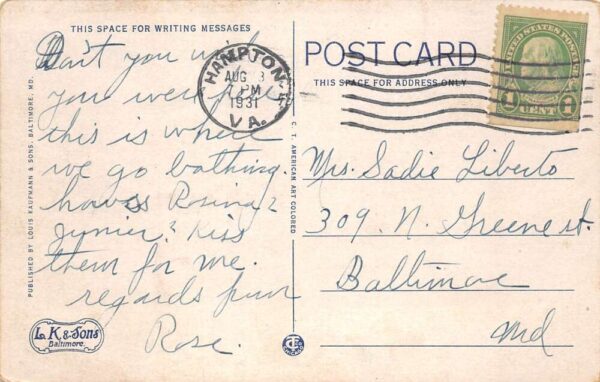 THIS SPACE FOR WRITING MESSAGES
Don't you wish
you were here
this is where
we go bathing.
hows Rosina &
Junior? Kiss
them for me.
regards from
Rose.
PUBLISHED BY LOUIS KAUFMANN & SONS, BALTIMORE, MD.
L. K & Sons
Baltimore
C. T. AMERICAN ART COLORED
HAMPTON
AUG 3
PM
1931
VA.
POST CARD
THIS SPACE FOR ADDRESS ONLY
UNITED STATES POSTAGE
1 CENT 1
Mrs. Sadie Liberto
309 N. Greene st.
Baltimore
Md